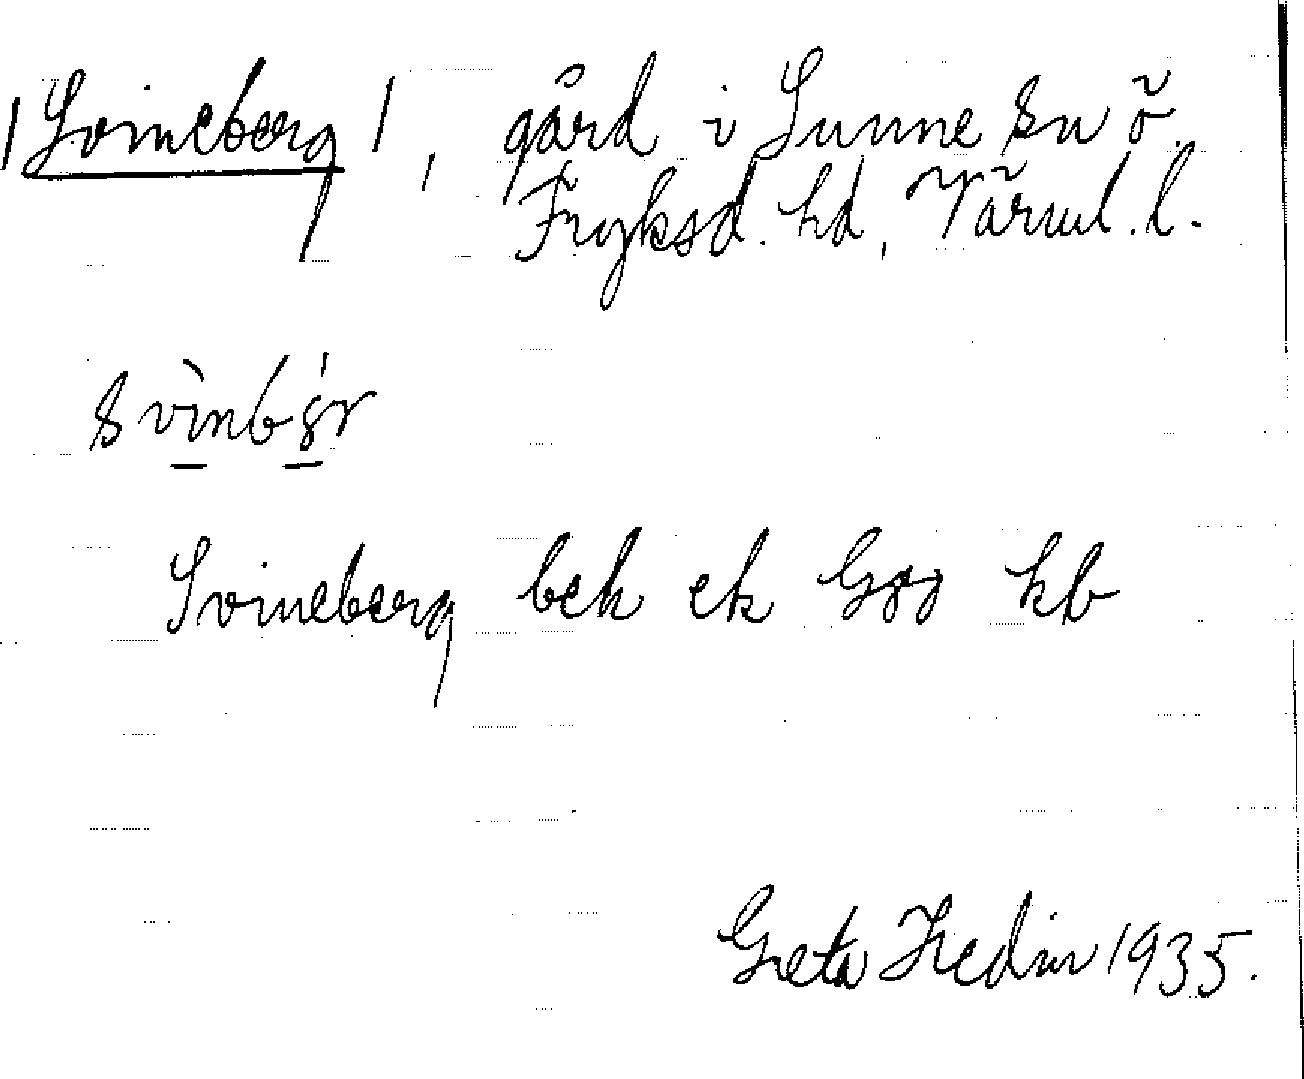 |Svineberg|, gård i Sunne sn ö.
Fryksd. hd, Värml. l.
Svineberg bek ek Gjö kb
Greta Hedin 1935.